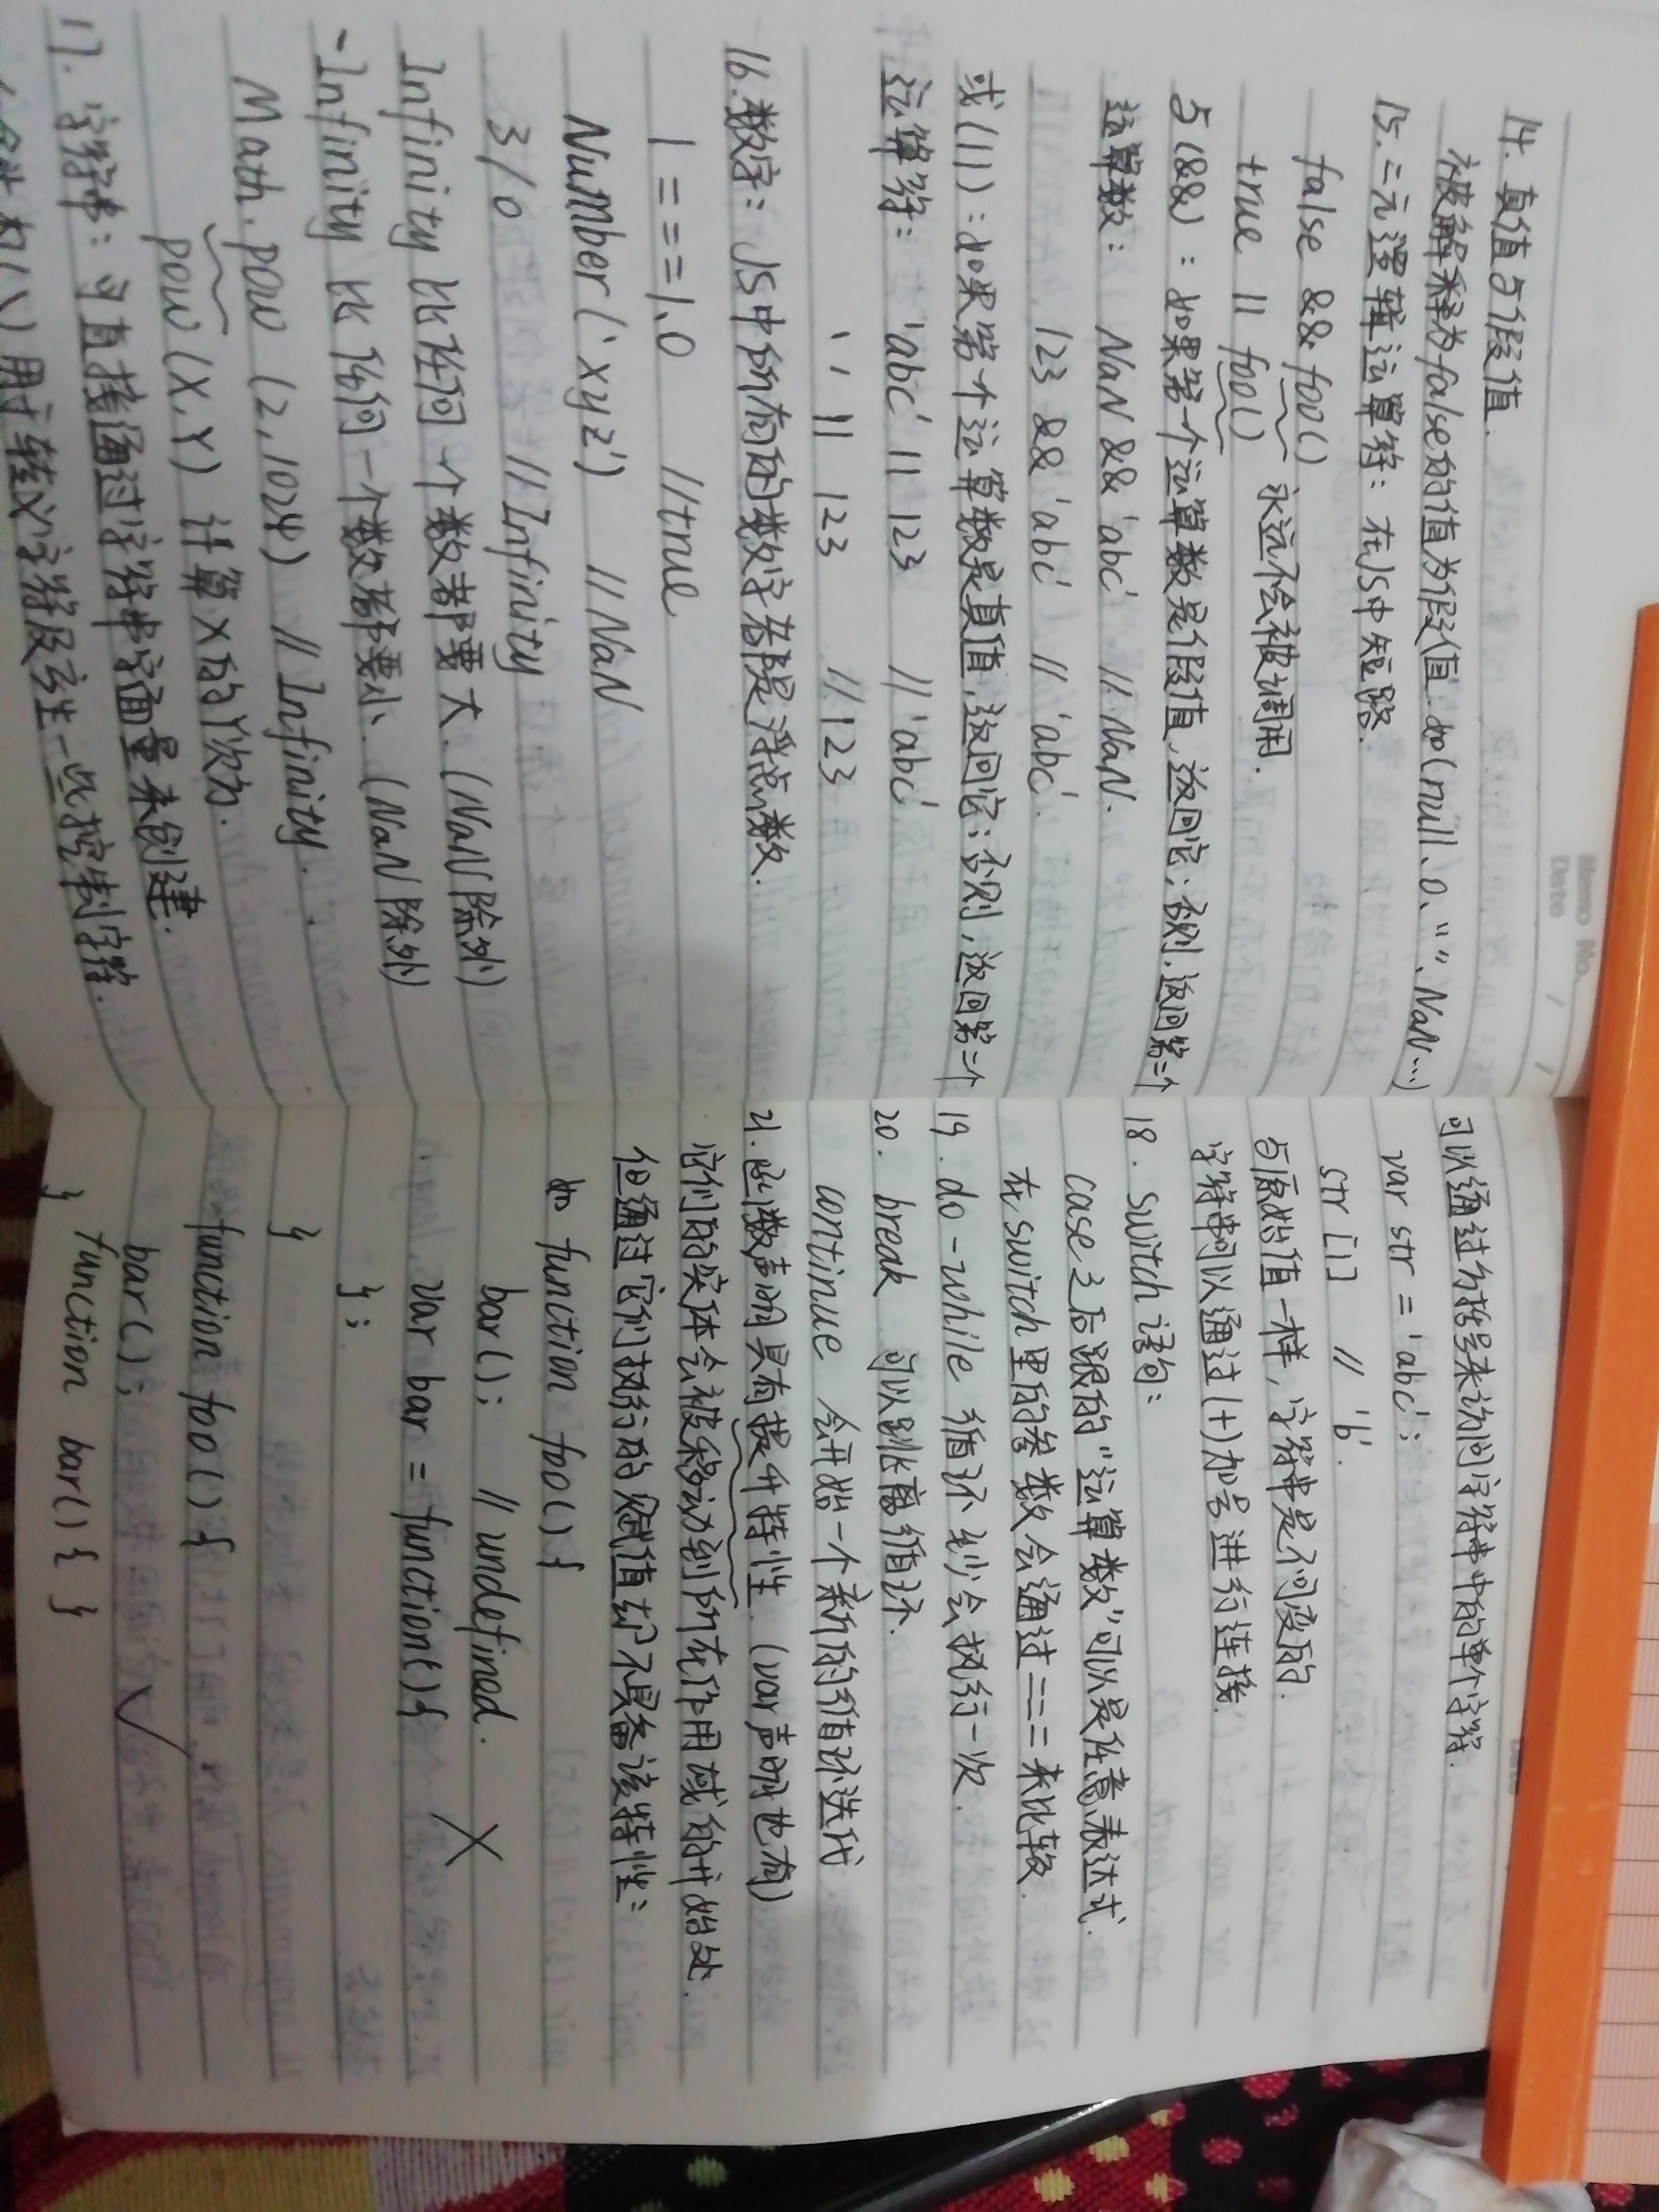 Memo No.
Date
14. 真值与假值.
被解释为false的值为假值.如(null、0、""、NaN…)
15. 二元逻辑运算符: 在JS中短路.
false && foo()
true || foo() 永远不会被调用.
与(&&): 如果第一个运算数是假值,返回它;否则,返回第二个
运算数: NaN && 'abc' // NaN.
123 && 'abc' // 'abc'.
或(||): 如果第一个运算数是真值,返回它;否则,返回第二个
运算符: 'abc' || 123 // 'abc'
'' || 123 // 123
16. 数字: JS中所有的数字都是浮点数.
1 === 1.0 // true
Number('xyz') // NaN
3/0 // Infinity
Infinity 比任何一个数都要大. (NaN除外)
-Infinity 比任何一个数都要小、(NaN除外)
Math.pow (2,1024) // Infinity.
pow (X,Y) 计算X的Y次方.
17. 字符串: 可直接通过字符串字面量来创建.
用于转义字符及产生一些控制字符.
可以通过方括号来访问字符串中的单个字符.
var str = 'abc';
str [1] // 'b'.
与原始值一样,字符串是不可变的.
字符串可以通过(+)加号进行连接.
18. switch语句:
case之后跟的"运算数"可以是任意表达式.
在switch里的参数会通过===来比较.
19. do-while 循环至少会执行一次.
20. break 可以跳离循环.
continue 会开始一个新的循环迭代
21. 函数声明具有提升特性. (var声明也有)
它们的实体会被移动到所在作用域的开始处.
但通过它们执行的赋值却不具备该特性:
如 function foo() {
bar(); // undefined.
var bar = function() {
};
}
function foo() {
bar();
function bar() { }
}